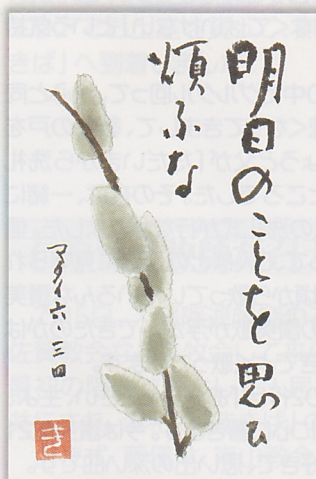 明日のことを思ひ
煩ふな
マタイ六・三四
き